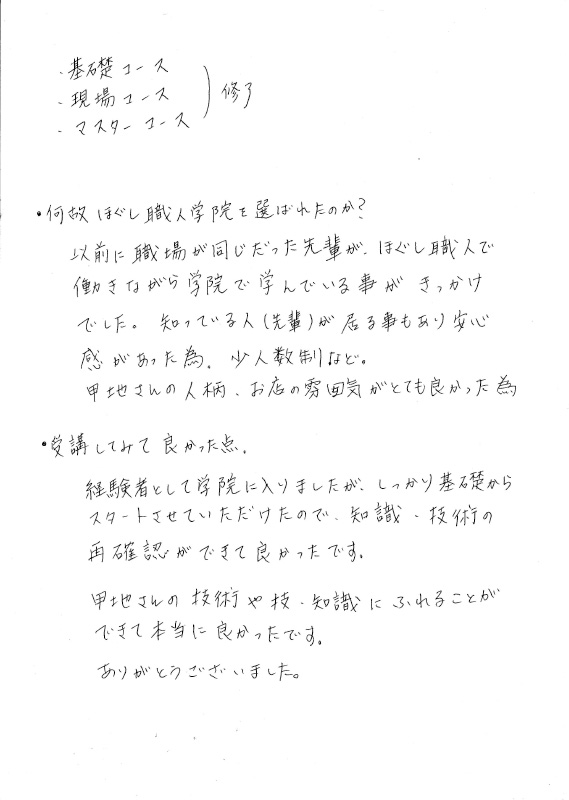 ・基礎コース
・現場コース
・マスターコース
修了
・何故ほぐし職人学院を選ばれたのか?
以前に職場が同じだった先輩が、ほぐし職人で
働きながら学院で学んでいる事がきっかけ
でした。知っている人(先輩)が居る事もあり安心
感があった為、少人数制など。
甲地さんの人柄、お店の雰囲気がとても良かった為
・受講してみて良かった点、
経験者として学院に入りましたが、しっかり基礎から
スタートさせていただけたので、知識・技術の
再確認ができて良かったです。
甲地さんの技術や技・知識にふれることが
できて本当に良かったです。
ありがとうございました。